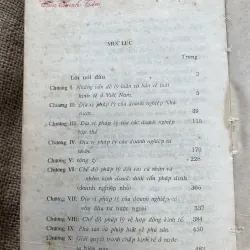 MỤC LỤC
Trang
Lời nói đầu 3
Chương I: Những vấn đề lý luận cơ bản về luật
kinh tế ở Việt Nam.
Chương II: Địa vị pháp lý của doanh nghiệp Nhà
nước.
Chương III: Địa vị pháp lý của các doanh nghiệp
tập thể
Chương IV: Địa vị pháp lý của các doanh nghiệp tư
nhân 170
Chương V: công ty 226
Chương VI: Chế độ pháp lý đối với cá nhân và
nhóm kinh doanh dưới vốn pháp định
(doanh nghiệp nhỏ) 366
Chương VII: Địa vị pháp lý của doanh nghiệp có
vốn đầu tư nước ngoài 337
Chương VIII: Chế độ pháp lý về hợp đồng kinh tế 384
Chương IX: Phá sản và pháp luật về phá sản 450
Chương X: Giải quyết tranh chấp kinh tế ở nước
ta hiện nay